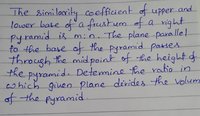 The similarity coefficient of upper and
lower base of a frustum of a right
pyramid is m:n. The plane parallel
to the base of the pyramid passes
through the midpoint of the height of
the pyramid. Determine the ratio in
which given plane divides the volum
of the pyramid.